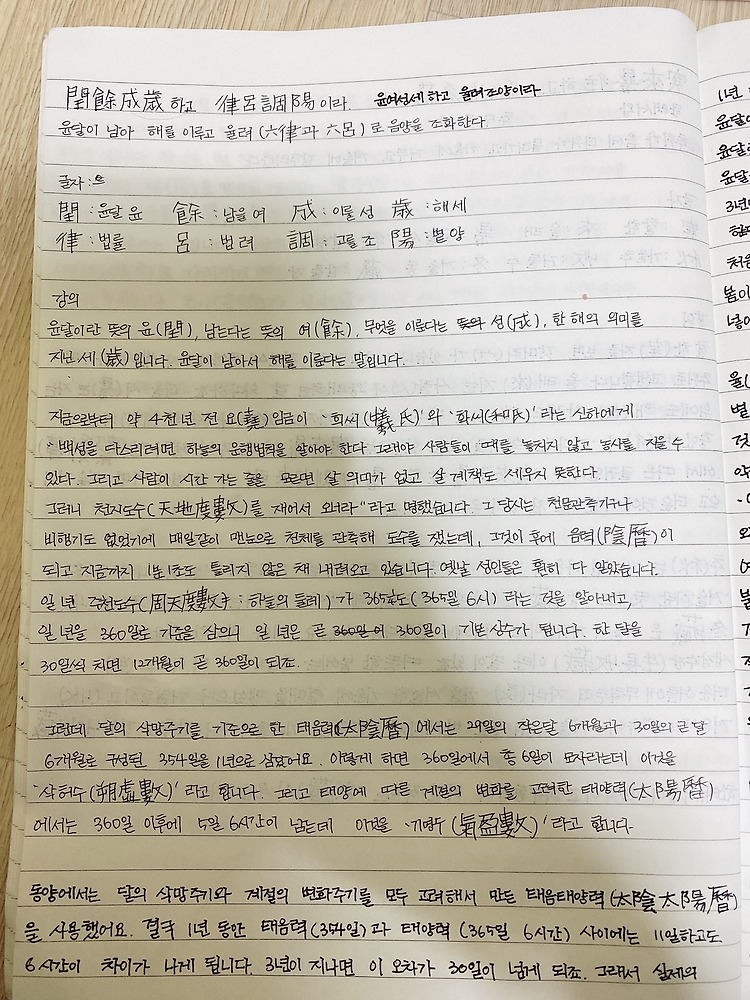 閏餘成歲하고 律呂調陽이라. 윤여성세하고 율려조양이라
윤달이 남아 해를 이루고 율려(六律과 六呂)로 음양을 조화한다.
글자:
閏:윤달 윤 餘:남을 여 成:이룰 성 歲:해 세
律:법률 呂:법려 調:고를 조 陽:볕양
강의
윤달이란 뜻의 윤(閏), 남는다는 뜻의 여(餘), 무엇을 이룬다는 뜻의 성(成), 한 해의 의미를
지닌 세(歲)입니다. 윤달이 남아서 해를 이룬다는 말입니다.
지금으로부터 약 4천년 전 요(堯)임금이 '희씨(犧氏)'와 '화씨(和氏)'라는 신하에게
"백성을 다스리려면 하늘의 운행법칙을 알아야 한다. 그래야 사람들이 때를 놓치지 않고 농사를 지을 수
있다. 그리고 사람이 시간 가는 줄을 모르면 살 의미가 없고 살 계책도 세우지 못한다.
그러니 천지도수(天地度數)를 재어서 오너라"라고 명했습니다. 그 당시는 천문관측기구나
비행기도 없었기에 매일같이 맨눈으로 천체를 관측해 도수를 쟀는데, 그것이 후에 음력(陰曆)이
되고 지금까지 1분 1초도 틀리지 않은 채 내려오고 있습니다. 옛날 성인들은 훤히 다 알았습니다.
일 년 주천도수(周天度數 : 하늘의 둘레)가 365¼도(365일 6시)라는 것을 알아내고,
일 년을 360일로 기준을 삼으니 일 년은 곧 360일이 기본상수가 됩니다. 한 달을
30일씩 치면 12개월이 곧 360일이 되죠.
그런데 달의 삭망주기를 기준으로 한 태음력(太陰曆)에서는 29일의 작은달 6개월과 30일의 큰달
6개월로 구성된 354일을 1년으로 삼았어요. 이렇게 하면 360일에서 총 6일이 모자라는데 이것을
'삭허수(朔虛數)'라고 합니다. 그리고 태양에 따른 계절의 변화를 고려한 태양력(太陽曆)
에서는 360일 이후에 5일 6시간이 남는데 이것을 '기영수(氣盈數)'라고 합니다.
동양에서는 달의 삭망주기와 계절의 변화주기를 모두 고려해서 만든 태음태양력(太陰太陽曆)
을 사용했어요. 결국 1년 동안 태음력(354일)과 태양력(365일 6시간) 사이에는 11일하고도
6시간이 차이가 나게 됩니다. 3년이 지나면 이 오차가 30일이 넘게 되죠. 그래서 실제의